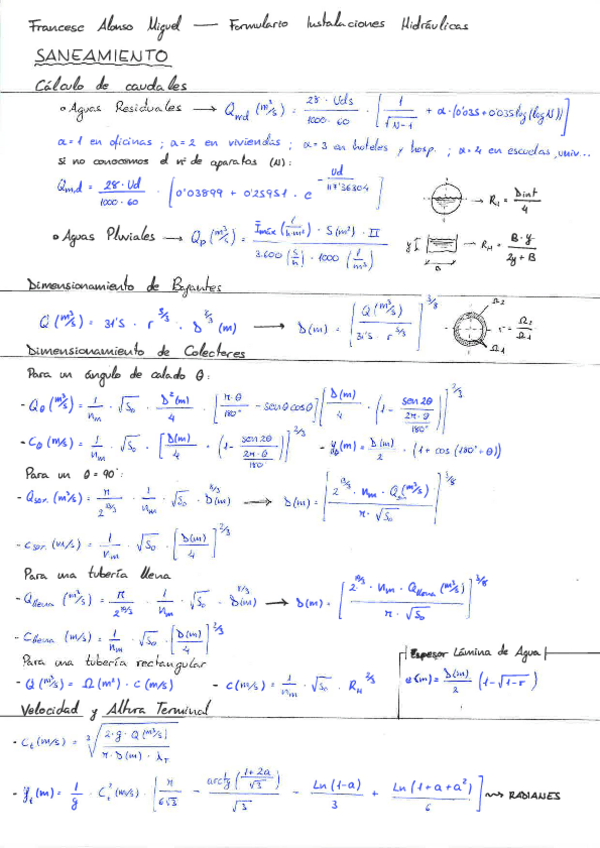 Francesc Alonso Miguel — Formulario Instalaciones Hidráulicas
SANEAMIENTO
Cálculo de caudales
• Aguas Residuales → Qmd (m³/s) = 28 · Uds / 1000 · 60 · [1 / √N-1 + α · (0'035 + 0'035 log (log N))]
α = 1 en oficinas ; α = 2 en viviendas ; α = 3 en hoteles y hosp. ; α = 4 en escuelas, univ...
si no conocemos el nº de aparatos (N):
Qmd = 28 · Ud / 1000 · 60 · [0'03899 + 0'25951 · e^(- Ud / 117'36804)]
→ RH = Dint / 4
• Aguas Pluviales → Qp (m³/s) = Imáx (l / h·m²) · S (m²) · II / 3.600 (s/h) · 1000 (l/m³)
y
a
→ RH = B · y / 2y + B
Dimensionamiento de Bajantes
Q (m³/s) = 31'5 · r^(5/3) · D^(8/3) (m) → D(m) = [Q (m³/s) / 31'5 · r^(5/3)]^(3/8)
Ω2
r = Ω2 / Ω1
Ω1
Dimensionamiento de Colectores
Para un ángulo de calado θ:
- Qθ (m³/s) = 1/nm · √S0 · D²(m)/4 · [π·θ/180° - senθcosθ] [D(m)/4 · (1 - sen2θ / (2π·θ/180°))]^(2/3)
- Cθ (m/s) = 1/nm · √S0 · [D(m)/4 · (1 - sen2θ / (2π·θ/180))]^(2/3) - yθ(m) = D(m)/2 · (1 + cos (180° + θ))
Para un θ = 90°:
- Qser. (m³/s) = π / 2^(13/3) · 1/nm · √S0 · D(m)^(8/3) → D(m) = [2^(13/3) · nm · Q (m³/s) / π · √S0]^(3/8)
- Cser. (m/s) = 1/nm · √S0 · [D(m)/4]^(2/3)
Para una tubería llena
- Qllena (m³/s) = π / 2^(10/3) · 1/nm · √S0 · D(m)^(8/3) → D(m) = [2^(10/3) · nm · Qllena (m³/s) / π · √S0]^(3/8)
- Cllena (m/s) = 1/nm · √S0 · [D(m)/4]^(2/3)
Para una tubería rectangular
- Q (m³/s) = Ω(m²) · C(m/s) - C(m/s) = 1/nm · √S0 · RH^(2/3)
Espesor Lámina de Agua
e(m) = D(m)/2 (1 - √1-r)
Velocidad y Altura Terminal
- Ct (m/s) = ³√(2·g·Q (m³/s) / π · D(m) · λT)
- yt (m) = 1/g · Ct² (m/s) · [π / 6√3 - arctg (1+2a / √3) / √3 - Ln (1-a) / 3 + Ln (1+a+a²) / 6] → RADIANES